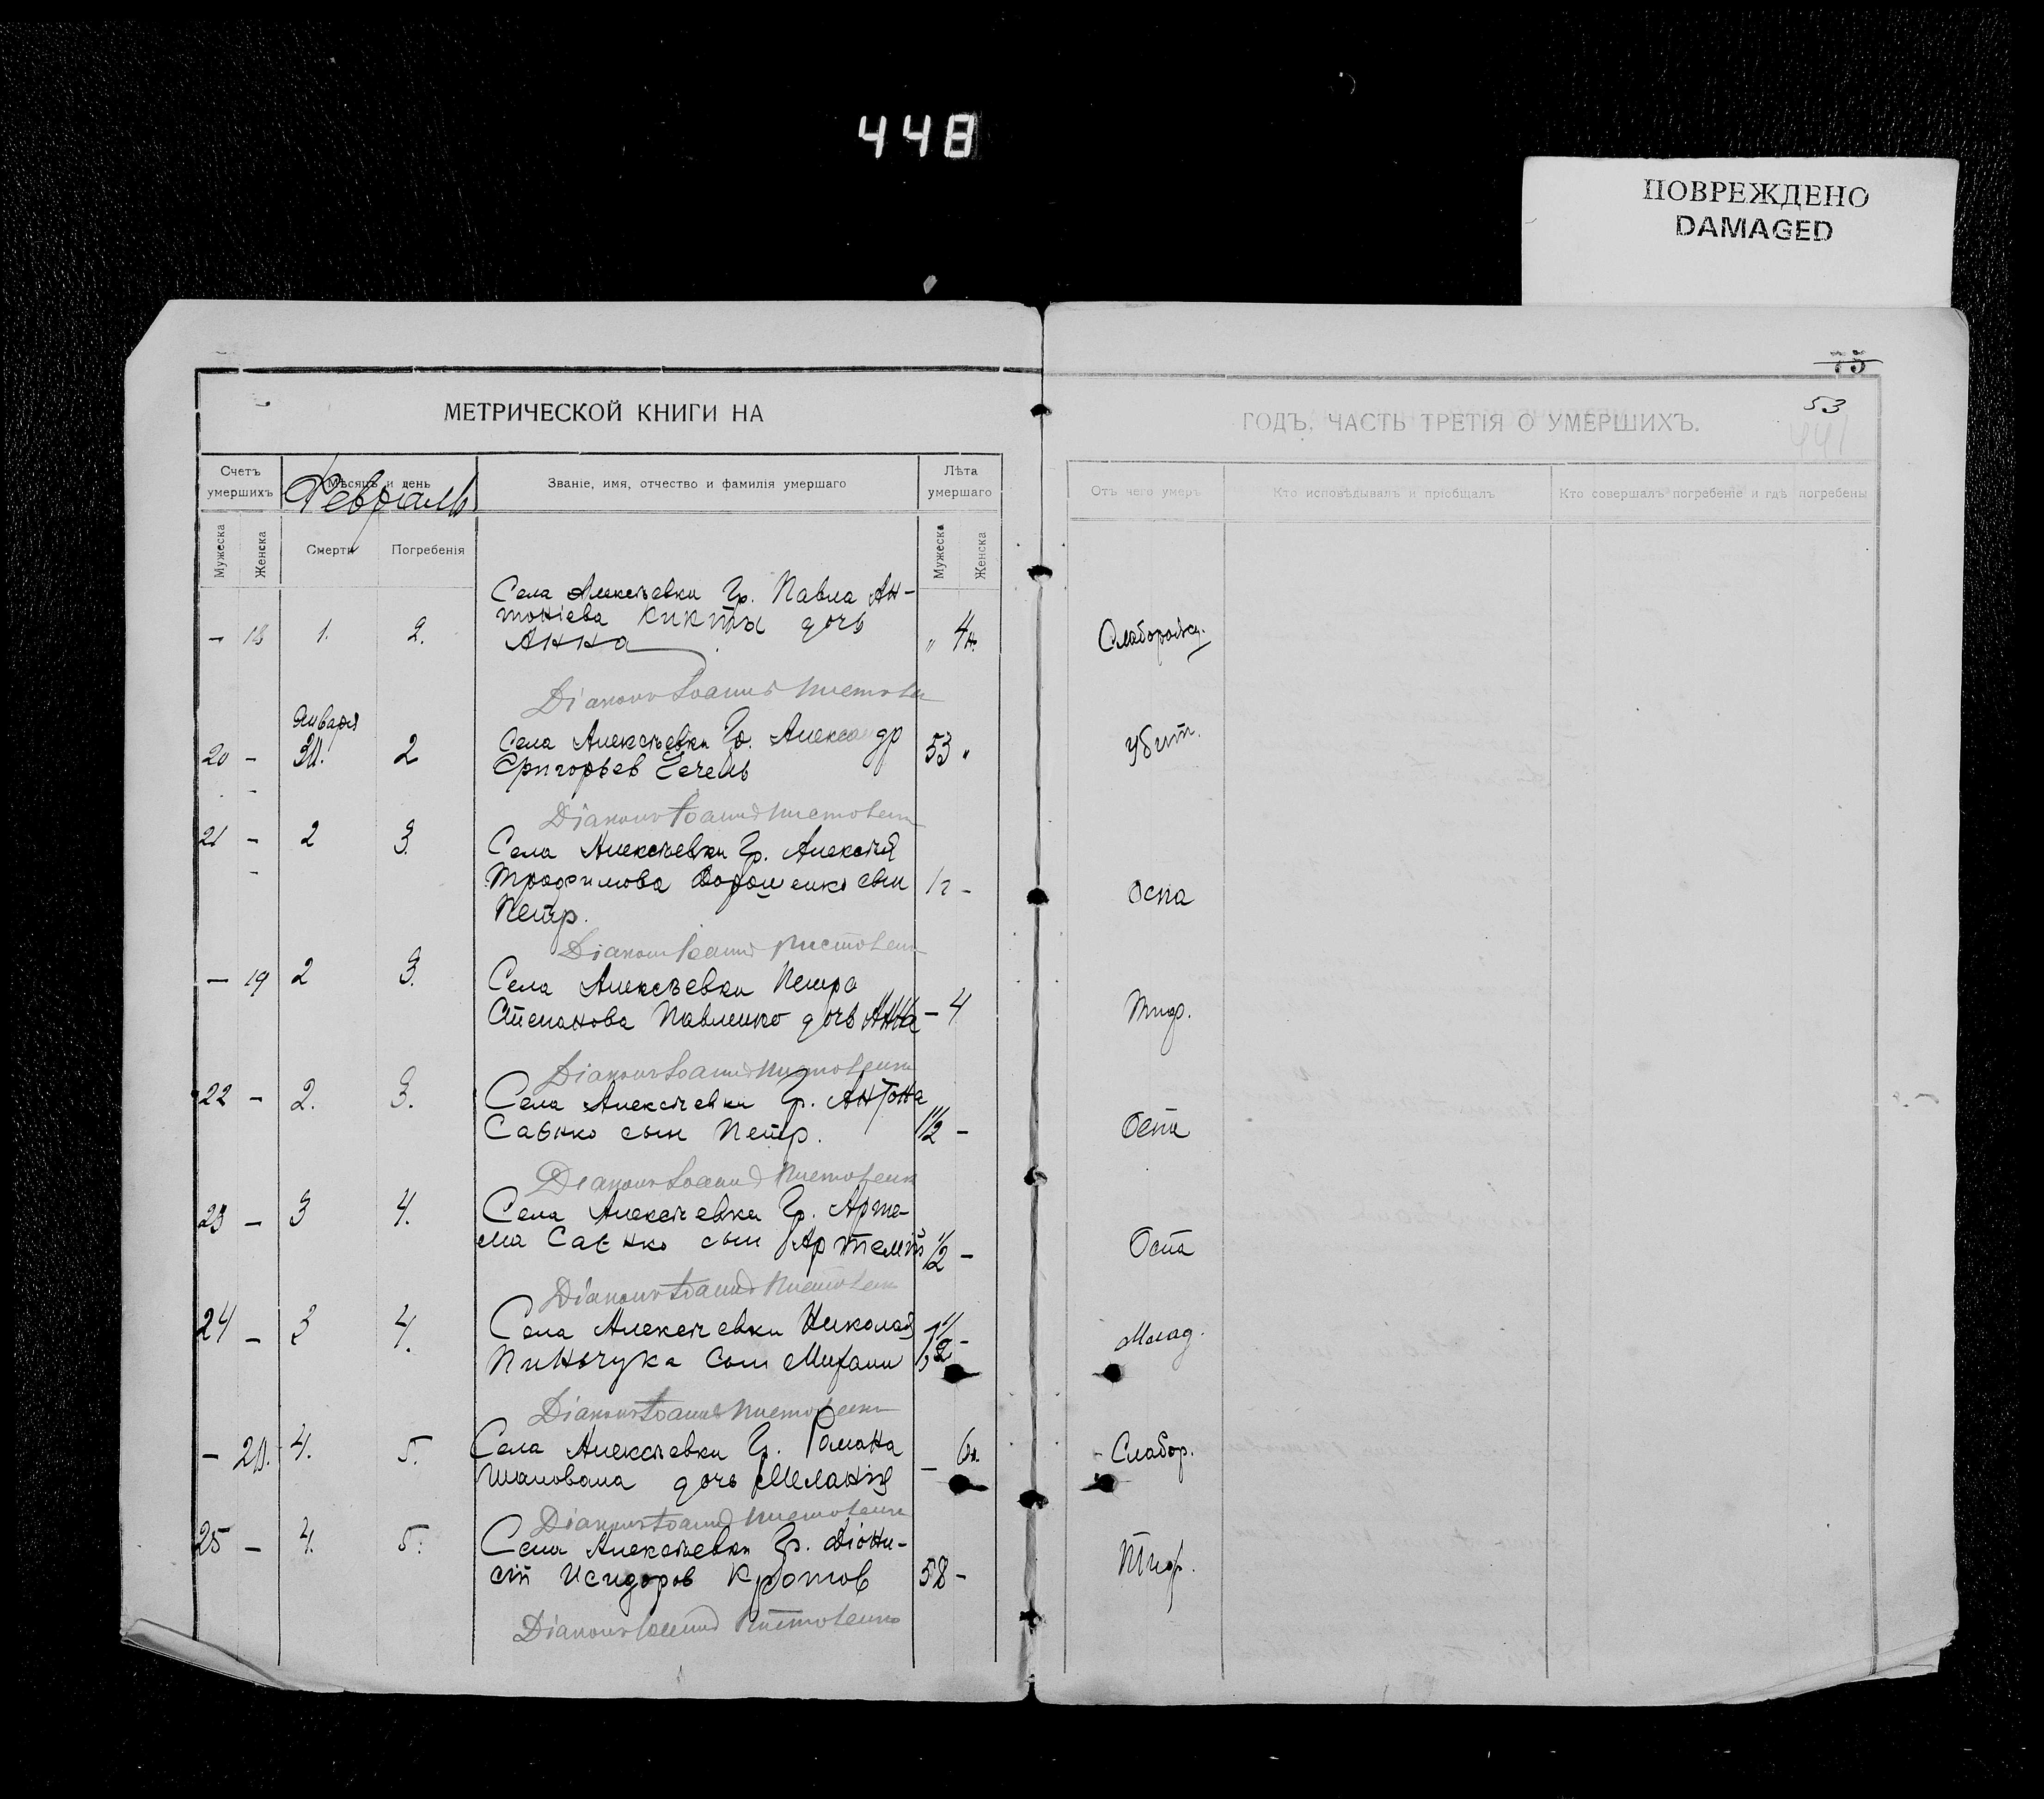 448
ПОВРЕЖДЕНО
DAMAGED
75
53
441
МЕТРИЧЕСКОЙ КНИГИ НА
ГОДЪ, ЧАСТЬ ТРЕТІЯ О УМЕРШИХЪ.
Счетъ умершихъ
Мѣсяцъ и день
Февраль
Званіе, имя, отчество и фамилія умершаго
Лѣта умершаго
Отъ чего умеръ
Кто исповѣдывалъ и пріобщалъ
Кто совершалъ погребеніе и гдѣ погребены
Мужеска
Женска
Смерти
Погребенія
Мужеска
Женска
Села Алексѣевки Гр. Павла Ан-
тоніева Кикты дочь
– 18 1. 2. Анна " 4н. Слаборожд.
Діаконъ Іоаннъ
Января
20 – 30. 2 Села Алексѣевки Гр. Александр 53 " Убит.
Григорьев Гечель
Діаконъ Іоаннъ
21 – 2 3. Села Алексѣевки Гр. Алексѣя
Трофимова Дорошенко сын 1г – Оспа
Петр.
Діаконъ Іоаннъ
– 19 2 3. Села Алексѣевки Петра
Степанова Павленко дочь Анна – 4 Тиф.
Діаконъ Іоаннъ
22 – 2. 3. Села Алексѣевки Гр. Антона
Саенко сын Петр. 1/2 – Оспа
Діаконъ Іоаннъ
23 – 3 4. Села Алексѣевки Гр. Арте-
ма Саенко сын Артемій 1/2 – Оспа
Діаконъ Іоаннъ
24 – 3 4. Села Алексѣевки Николая
Пиньчука сын Михаил – Млад.
Діаконъ Іоаннъ
– 20. 4. 5. Села Алексѣевки Гр. Романа – 6н. Слабор.
Шаповала дочь Меланія
Діаконъ Іоаннъ
25 – 4. 5. Села Алексѣевки Гр. Діони-
сій Исидоров Кротов 58 – Тиф.
Діаконъ Іоаннъ